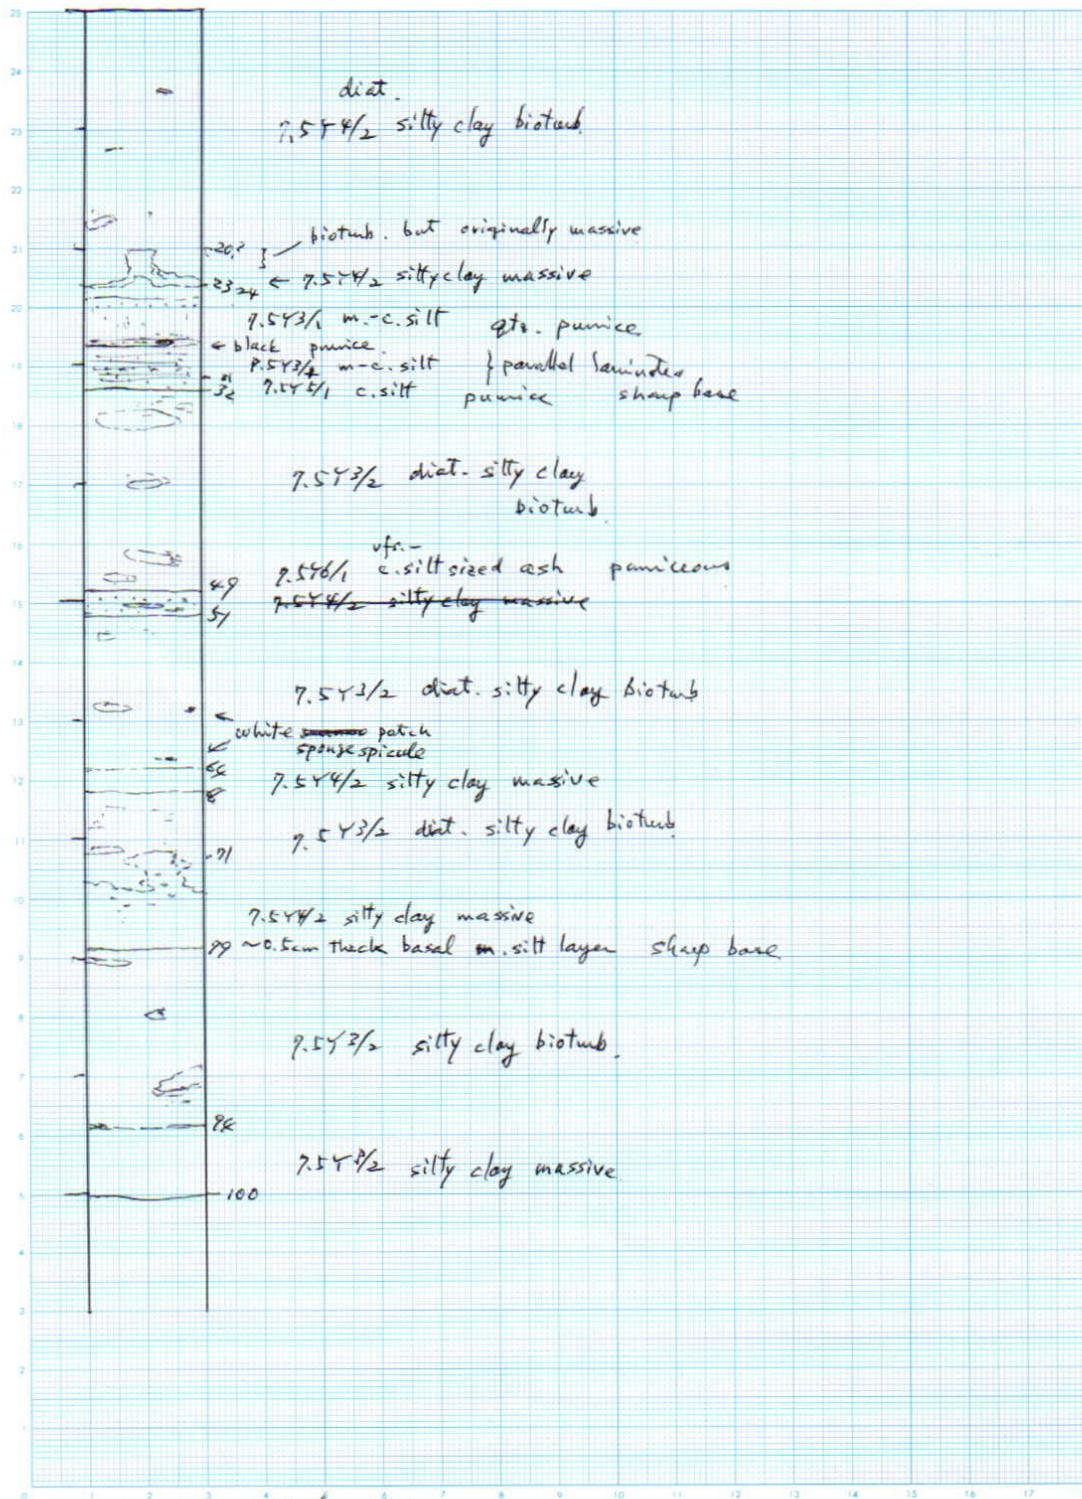 25
24
diat.
23 7.5Y4/2 silty clay bioturb.
22
21 20? } bioturb. but originally massive
23 24 ← 7.5Y4/2 silty clay massive
20
7.5Y3/1 m.-c. silt qtz. pumice
← black pumice
19 m-c. silt } parallel laminated
32 7.5Y5/1 c. silt pumice sharp base
18
17 7.5Y3/2 diat. silty clay
bioturb.
16 vfs.-
49 7.5Y6/1 c. silt sized ash pumiceous
15 7.5Y4/2 silty clay massive
51
14
7.5Y3/2 diat. silty clay bioturb
13
← white patch
sponge spicule
12 7.5Y4/2 silty clay massive
11 7.5Y3/2 diat. silty clay bioturb.
71
10
7.5Y4/2 silty clay massive
~0.5cm thick basal m. silt layer sharp base
9
8
7.5Y3/2 silty clay bioturb.
7
6
7.5Y silty clay massive
5 100
4
3
2
1
0 1 2 3 4 5 6 7 8 9 10 11 12 13 14 15 16 17